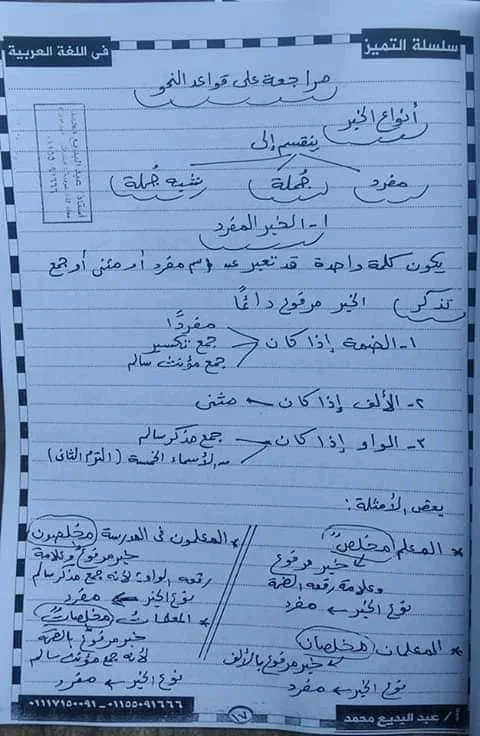 سلسلة التميز
فى اللغة العربية
مراجعة على قواعد النحو
أنواع الخبر
ينقسم إلى
مفرد جُملة شبه جُملة
١- الخبر المفرد
يكون كلمة واحدة قد تعبر عن اسم مفرد أو مثنى أو جمع
تذكر الخبر مرفوع دائمًا
١- الضمة إذا كان
مفردًا
جمع تكسير
جمع مؤنث سالم
٢- الألف إذا كان مثنى
٣- الواو إذا كان
جمع مذكر سالم
الأسماء الخمسة (الترم الثانى)
بعض الأمثلة:
* المعلم مخلصٌ
خبر مرفوع
وعلامة رفعه الضمة
نوع الخبر مفرد
* المعلمان مخلصان
خبر مرفوع بالألف
نوع الخبر مفرد
* المعلمون فى المدرسة مخلصون
خبر مرفوع وعلامة
رفعه الواو لأنه جمع مذكر سالم
نوع الخبر مفرد
* المعلمات مخلصاتٌ
خبر مرفوع بالضمة
لأنه جمع مؤنث سالم
نوع الخبر مفرد
أ/ عبد البديع محمد
١٧
٠١١٥٥٠٩١٦٦٦ - ٠١١١٧١٥٠٠٩١